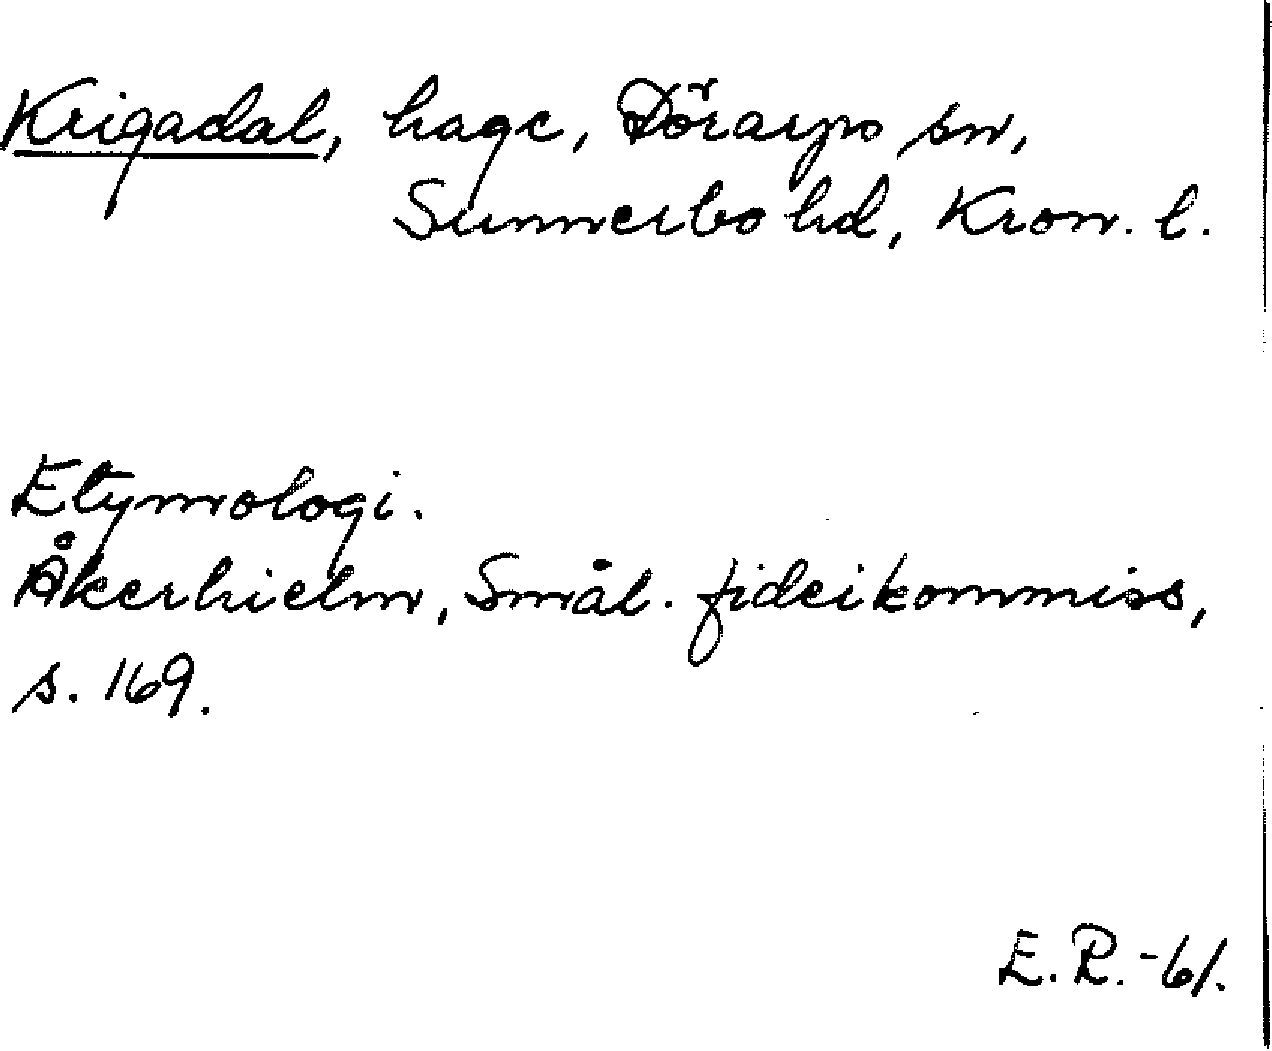 Krigadal, hage, Dörarps sn,
Sunnerbo hd, Kron. l.
Etymologi.
Åkerhielm, Smål. fideikommiss,
s. 169.
E. R. -61.